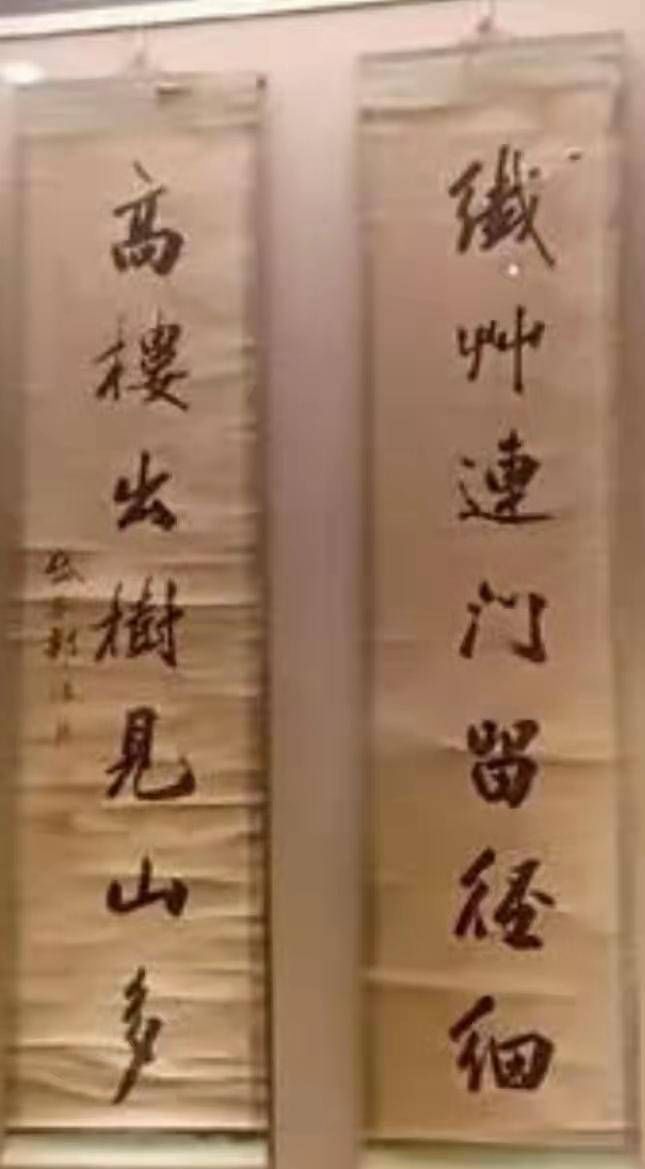 纖艸連门留徑細
高樓出樹見山多